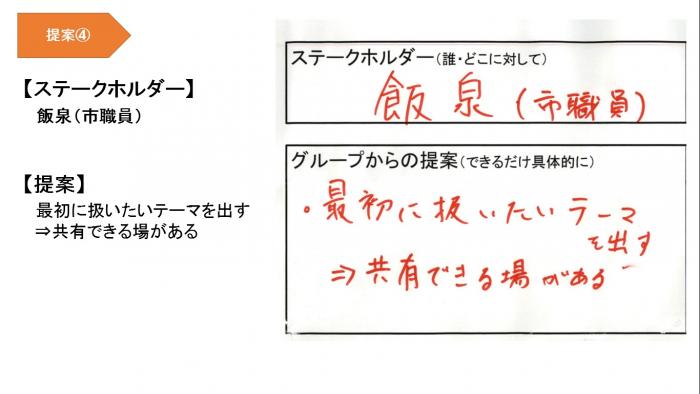 提案④
【ステークホルダー】
飯泉（市職員）
【提案】
最初に扱いたいテーマを出す
⇒共有できる場がある
ステークホルダー（誰・どこに対して）
飯泉（市職員）
グループからの提案（できるだけ具体的に）
・最初に扱いたいテーマ
を出す
⇒共有できる場がある